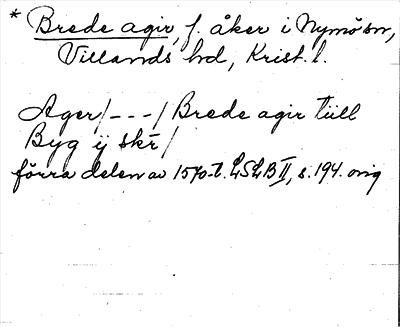 * Brede agir, f. åker i Nymö sn,
Villands hd, Krist. l.
Ager/---/Brede agir tiill
Byg ij skr/
förra delen av 1570-t. LSLB II, s. 194. orig